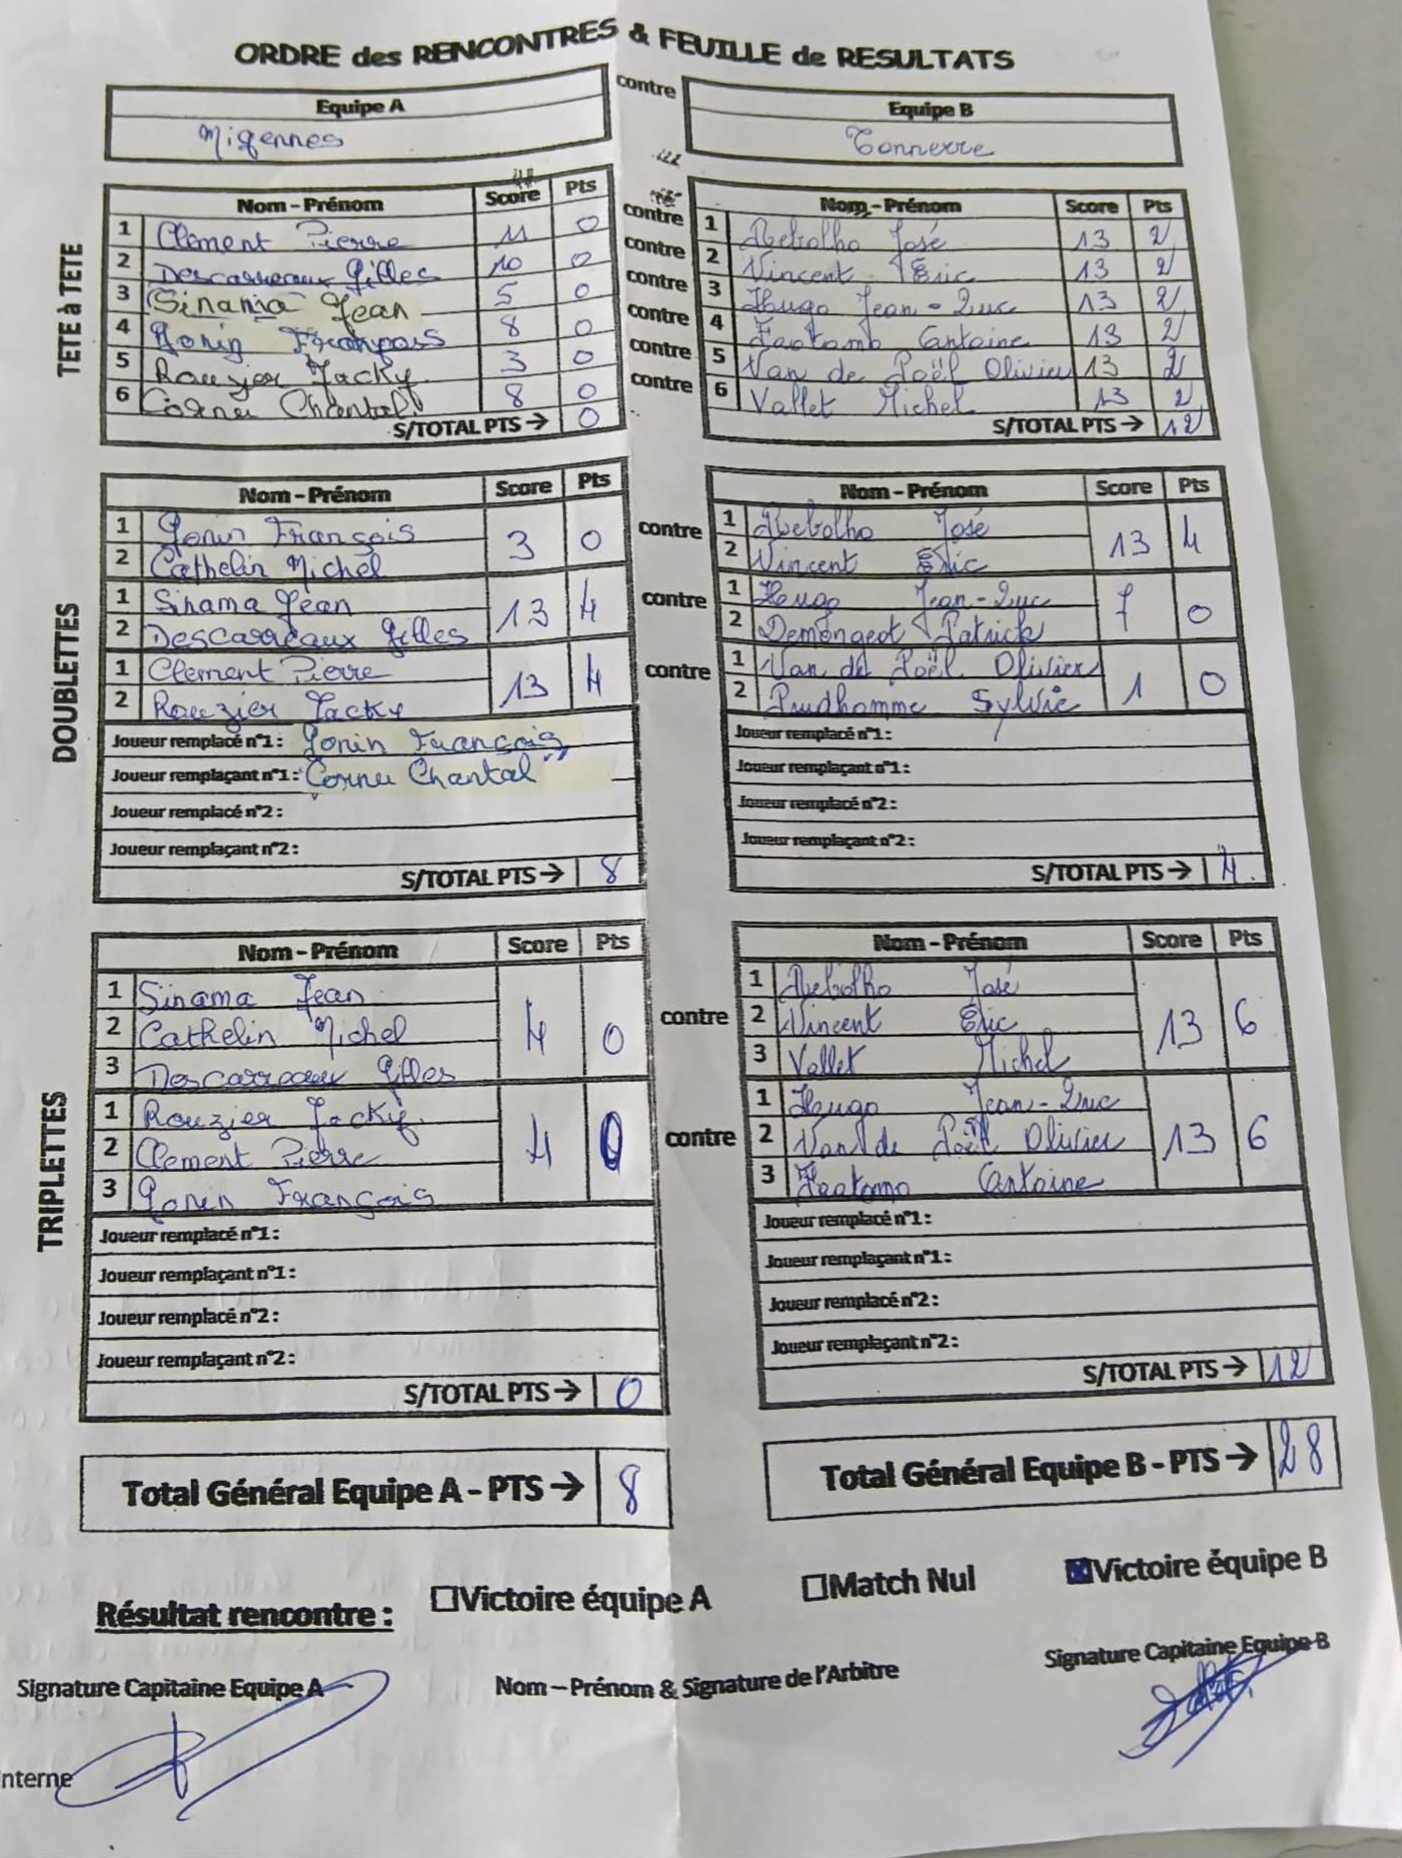 ORDRE des RENCONTRES & FEUILLE de RESULTATS
Equipe A contre Equipe B
Migennes Tonnerre
TETE à TETE
Nom - Prénom Score Pts Nom - Prénom Score Pts
1 Clement Pierre 11 0 contre 1 Rebolho José 13 2
2 Descarreaux Gilles 10 0 contre 2 Vincent Eric 13 2
3 Sinama Jean 5 0 contre 3 Hugo Jean-Luc 13 2
4 Gonin François 8 0 contre 4 Antoine 13 2
5 Rouzier Jacky 3 0 contre 5 Van de Poël Olivier 13 2
6 Cornu Chantal 8 0 contre 6 Vallet Michel 13 2
S/TOTAL PTS → 0 S/TOTAL PTS → 12
DOUBLETTES
Nom - Prénom Score Pts Nom - Prénom Score Pts
1 Gonin François 3 0 contre 1 Rebolho José 13 4
2 Cathelin Michel 2 Vincent Eric
1 Sinama Jean 13 4 contre 1 Hugo Jean-Luc 7 0
2 Descarreaux Gilles 2 Demongeot Patrick
1 Clement Pierre 13 4 contre 1 Van de Poël Olivier 1 0
2 Rouzier Jacky 2 Prudhomme Sylvie
Joueur remplacé n°1 : Gonin François Joueur remplacé n°1 :
Joueur remplaçant n°1 : Cornu Chantal Joueur remplaçant n°1 :
Joueur remplacé n°2 : Joueur remplacé n°2 :
Joueur remplaçant n°2 : Joueur remplaçant n°2 :
S/TOTAL PTS → 8 S/TOTAL PTS → 4
TRIPLETTES
Nom - Prénom Score Pts Nom - Prénom Score Pts
1 Sinama Jean 4 0 contre 1 Rebolho José 13 6
2 Cathelin Michel 2 Vincent Eric
3 Descarreaux Gilles 3 Vallet Michel
1 Rouzier Jacky 4 0 contre 1 Hugo Jean-Luc 13 6
2 Clement Pierre 2 Van de Poël Olivier
3 Gonin François 3 Antoine
Joueur remplacé n°1 : Joueur remplacé n°1 :
Joueur remplaçant n°1 : Joueur remplaçant n°1 :
Joueur remplacé n°2 : Joueur remplacé n°2 :
Joueur remplaçant n°2 : Joueur remplaçant n°2 :
S/TOTAL PTS → 0 S/TOTAL PTS → 12
Total Général Equipe A - PTS → 8 Total Général Equipe B - PTS → 28
Résultat rencontre : ☐Victoire équipe A ☐Match Nul ☒Victoire équipe B
Signature Capitaine Equipe A Nom – Prénom & Signature de l'Arbitre Signature Capitaine Equipe B
Interne